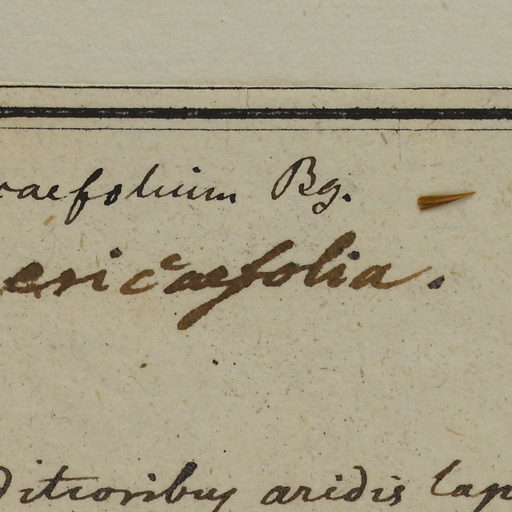 caefolium Bg.
ericaefolia.
ditionibus aridis lap